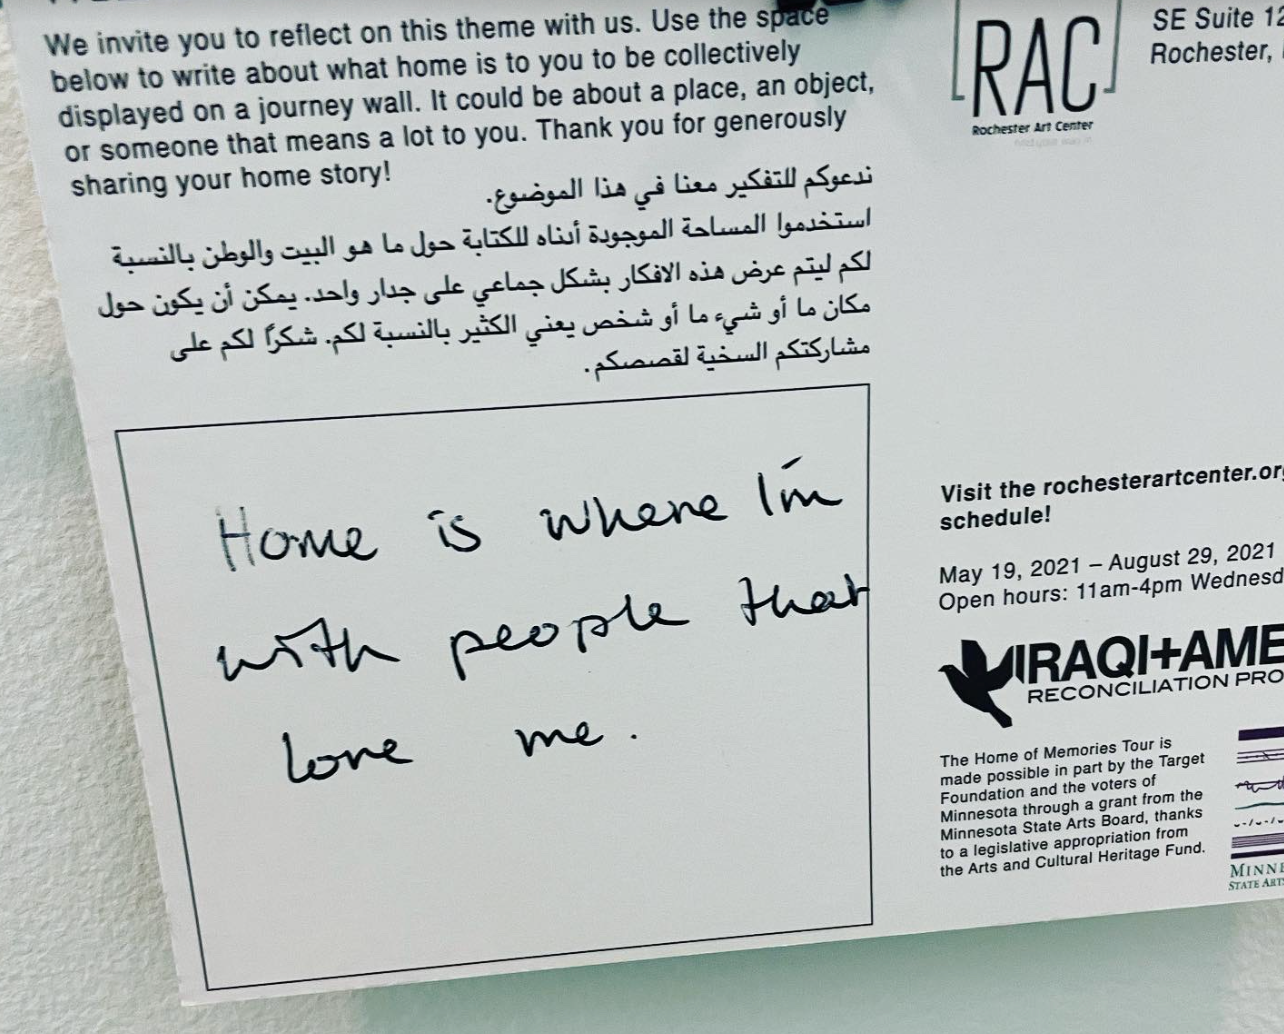 We invite you to reflect on this theme with us. Use the space
below to write about what home is to you to be collectively
displayed on a journey wall. It could be about a place, an object,
or someone that means a lot to you. Thank you for generously
sharing your home story!
ندعوكم للتفكير معنا في هذا الموضوع.
استخدموا المساحة الموجودة أدناه للكتابة حول ما هو البيت والوطن بالنسبة
لكم ليتم عرض هذه الافكار بشكل جماعي على جدار واحد. يمكن أن يكون حول
مكان ما أو شيء ما أو شخص يعني الكثير بالنسبة لكم. شكراً لكم على
مشاركتكم السخية لقصصكم.
Home is where I'm
with people that
love me.
RAC
Rochester Art Center
SE Suite 12
Rochester,
Visit the rochesterartcenter.org
schedule!
May 19, 2021 – August 29, 2021
Open hours: 11am-4pm Wednesd
IRAQI+AME
RECONCILIATION PRO
The Home of Memories Tour is
made possible in part by the Target
Foundation and the voters of
Minnesota through a grant from the
Minnesota State Arts Board, thanks
to a legislative appropriation from
the Arts and Cultural Heritage Fund.
MINNE
STATE ARTS